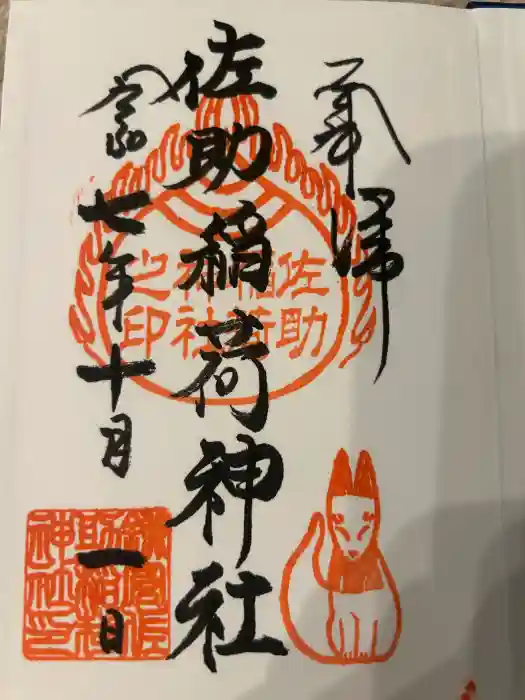 奉拝
佐助稲荷神社
令和七年十月一日
佐助
稲荷
神社
之印
鎌倉佐
助稲荷
神社印